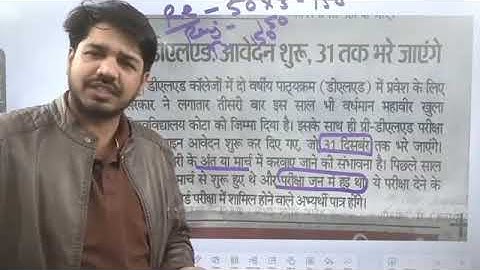 50 x 3 = 150
50
50
डीएलएड आवेदन शुरू, 31 तक भरे जाएंगे
डीएलएड कॉलेजों में दो वर्षीय पाठ्यक्रम (डीएलएड) में प्रवेश के लिए
सरकार ने लगातार तीसरी बार इस साल भी वर्धमान महावीर खुला
विश्वविद्यालय कोटा को जिम्मा दिया है। इसके साथ ही प्री-डीएलएड परीक्षा
आवेदन शुरू कर दिए गए, जो 31 दिसंबर तक भरे जाएंगे।
के अंत या मार्च में करवाए जाने की संभावना है। पिछले साल
मार्च से शुरू हुए थे और परीक्षा जून में हुई थी। ये परीक्षा देने के
परीक्षा में शामिल होने वाले अभ्यर्थी पात्र होंगे।